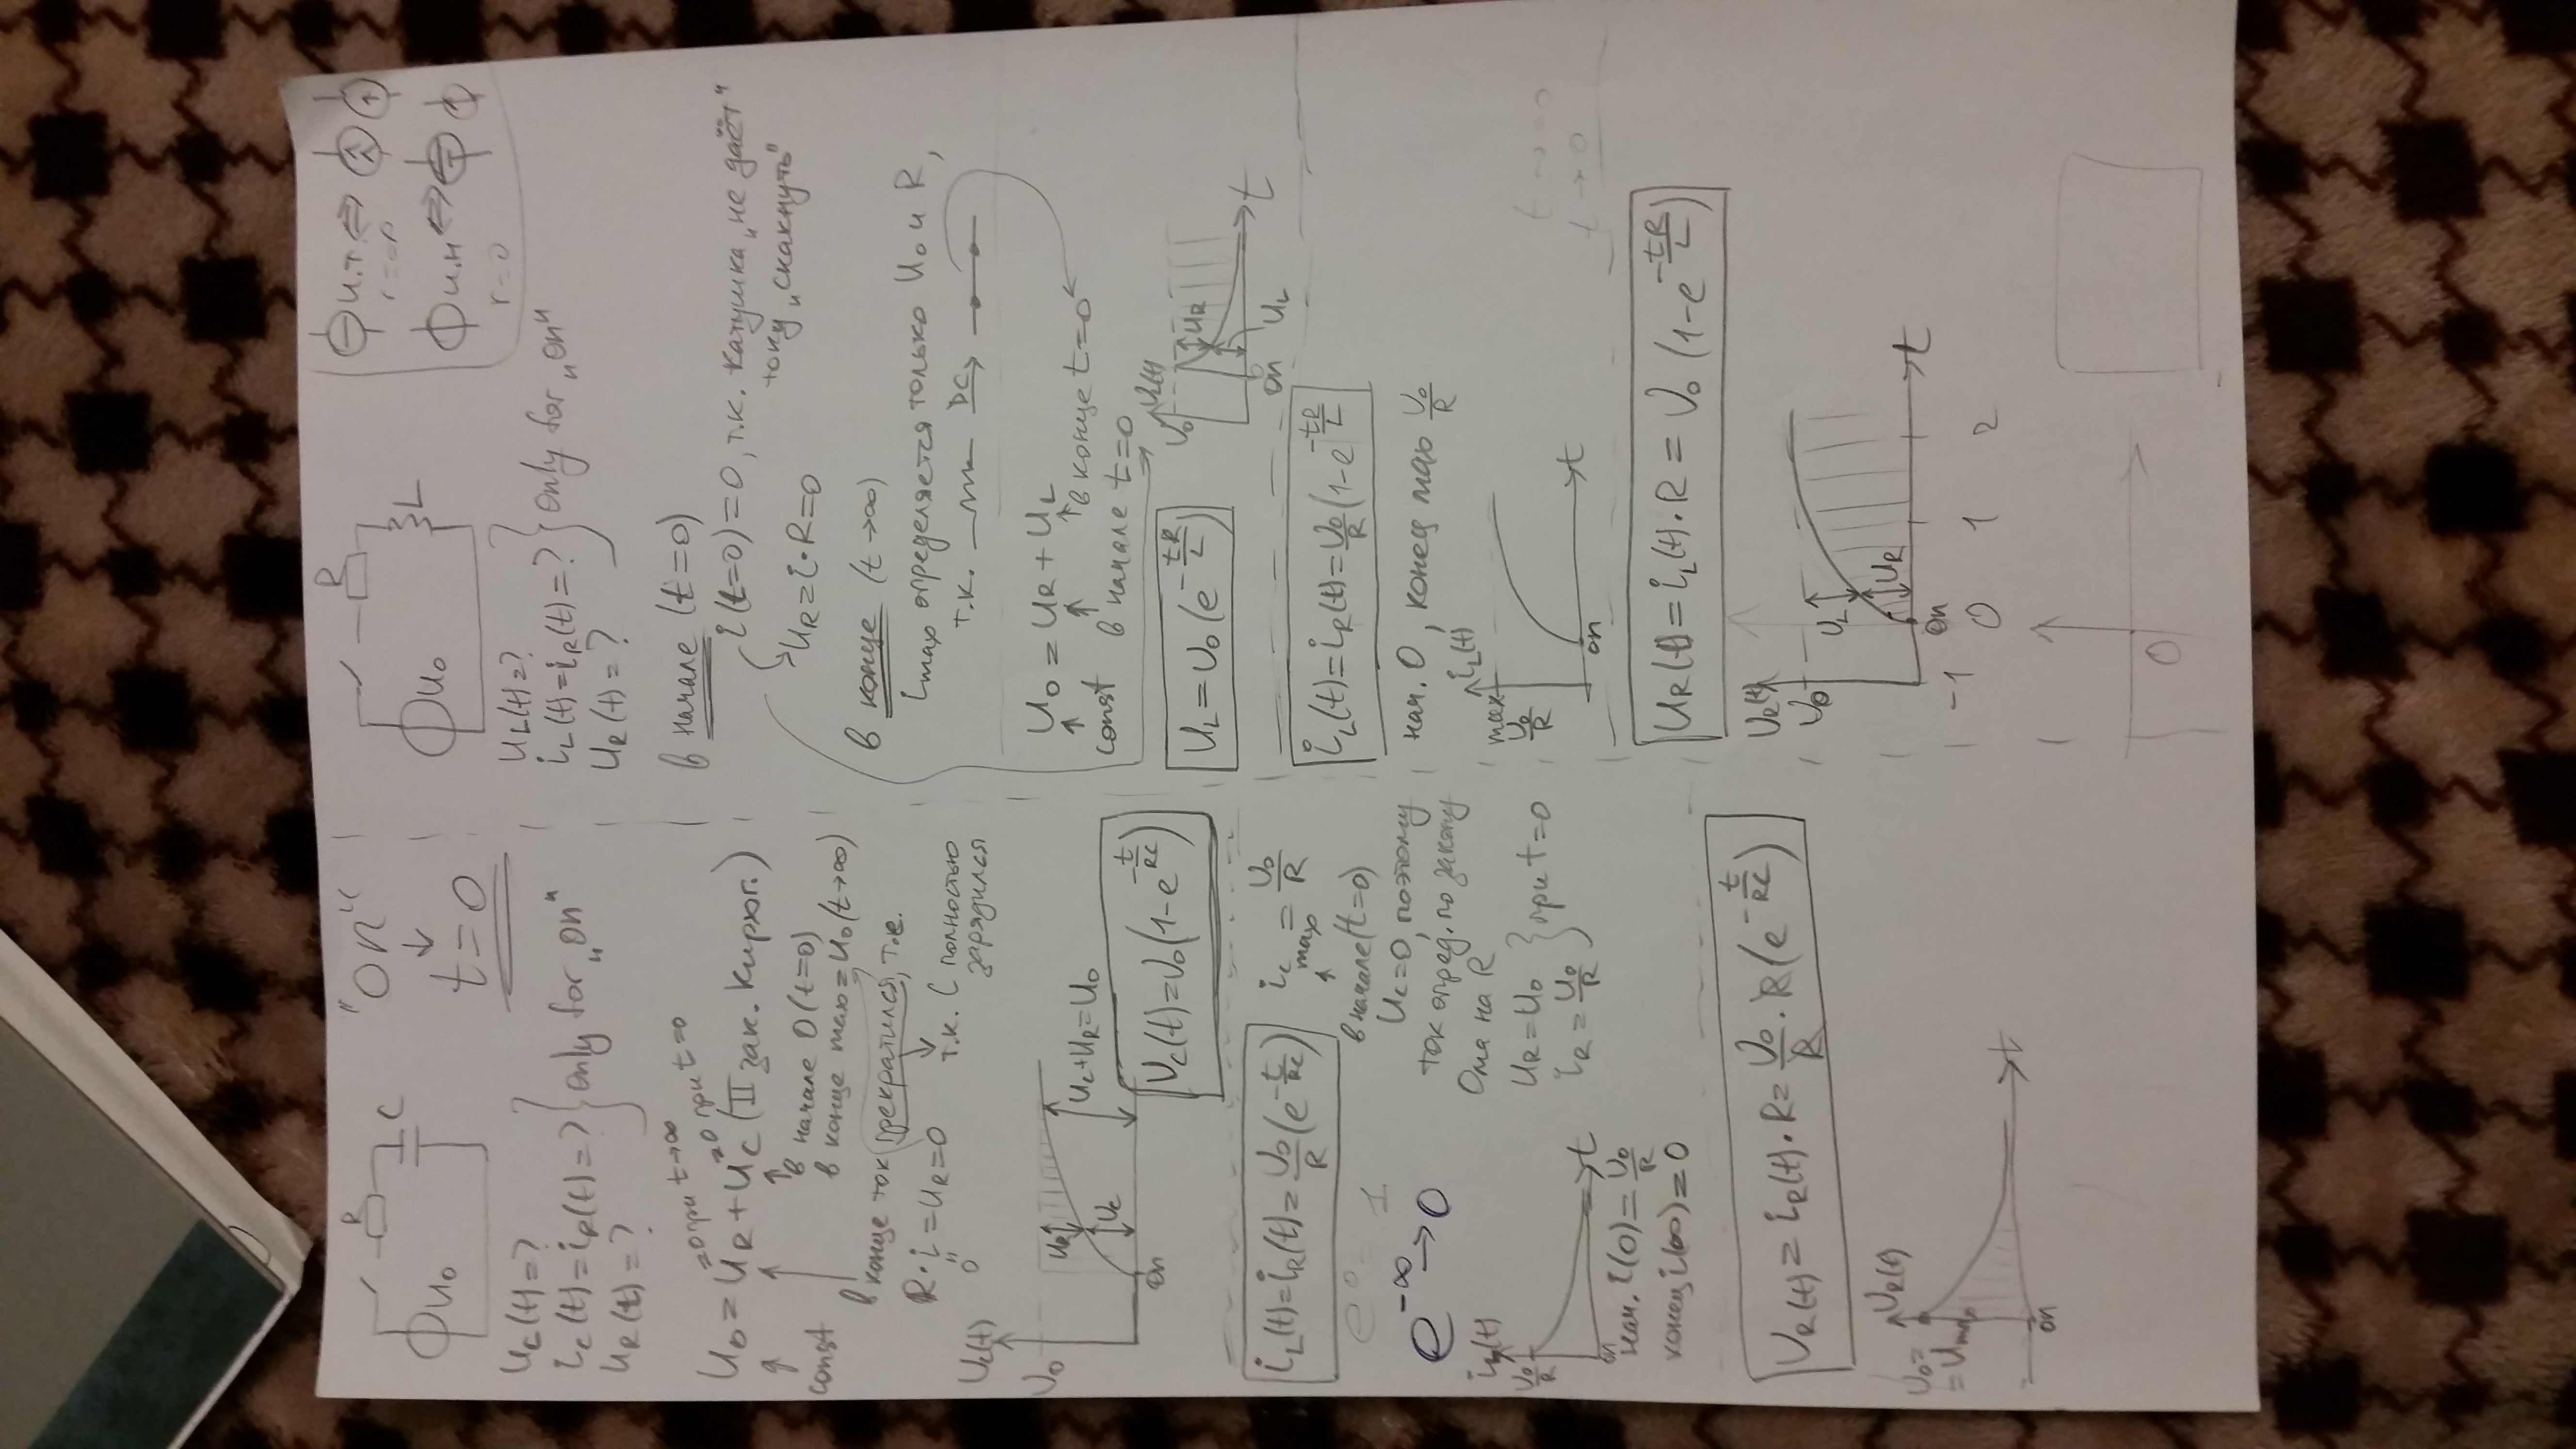 R
C
U₀
"on"
↓
t=0
U_C(t)=?
i_C(t)=i_R(t)=?
U_R(t)=?
only for „on"
=0 при t→∞
=0 при t=0
U₀=U_R+U_C (II зак. Кирхг.)
const
в начале 0 (t=0)
в конце max=U₀ (t→∞)
в конце ток прекратился, т.е.
R·i=U_R=0
0
т.к. C полностью
зарядился
U_C(t)
U₀
U_R
U_C
U_C+U_R=U₀
on
U_C(t)=U₀(1-e^{-t/RC})
i_L(t)=i_R(t)=U₀/R(e^{-t/RC})
i_C max=U₀/R
в начале (t=0)
U_C=0, поэтому
ток опред. по закону
Ома на R
U_R=U₀
i_R=U₀/R
при t=0
e⁰=1
e^{-∞}→0
U₀/R
t
on
нач. i(0)=U₀/R
конец i(∞)=0
U_R(t)=i_R(t)·R=U₀/R·R(e^{-t/RC})
U_R(t)
U₀=
=U_max
t
on
R
L
U₀
U_L(t)=?
i_L(t)=i_R(t)=?
U_R(t)=?
only for „on"
и.т ⇔
r=∞
и.н ⇔
r=0
в начале (t=0)
i(t=0)=0, т.к. катушка „не даёт"
току „скакнуть"
U_R=i·R=0
в конце (t→∞)
i_max определяется только U₀ и R,
т.к. DC→
U₀=U_R+U_L
const
в конце t=0
в начале t=0
U_L=U₀(e^{-tR/L})
U_L(t)
U₀
U_R
t
on
U_L
i_L(t)=i_R(t)=U₀/R(1-e^{-tR/L})
нач. 0, конец max U₀/R
i_L(t)
max
U₀/R
t
on
U_R(t)=i_L(t)·R=U₀(1-e^{-tR/L})
U_R(t)
U₀
U_L
U_R
t
on
-1 0 1 2
0